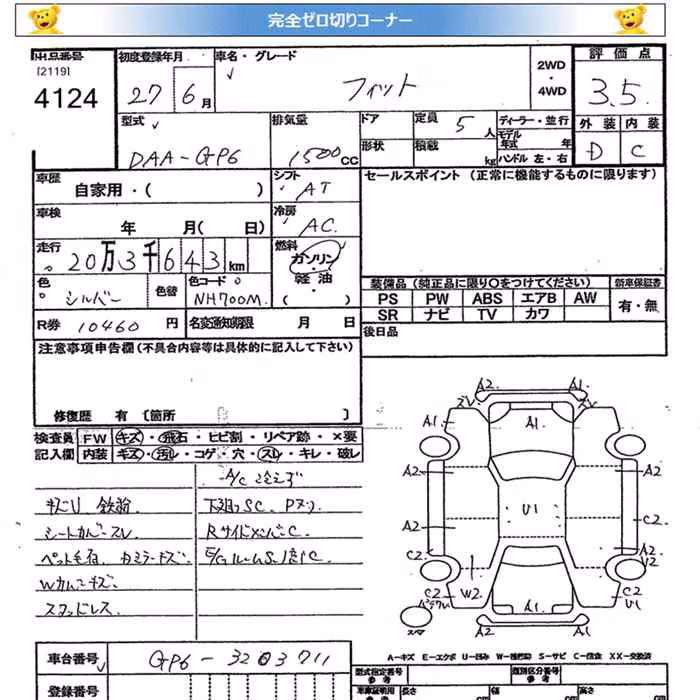 完全ゼロ切りコーナー
出品番号
[2119]
4124
初度登録年月
27 6月
車名・グレード
フィット
2WD
・
4WD
評価点
3.5
外装 内装
D C
型式
DAA-GP6
排気量
1500 CC
ドア
形状
定員 5人
積載 kg
ディーラー・並行
モデル年式 年
ハンドル 左・右
車歴
自家用・( )
シフト
AT
セールスポイント (正常に機能するものに限ります)
車検
年 月( 日)
冷房
AC
走行
20万3千643km
燃料
ガソリン
・
軽油
( )
色
シルバー
色替
色コード
NH700M
装備品 (純正品に限り○をつけてください)
新車保証書
PS PW ABS エアB AW
SR ナビ TV カワ
有・無
R券 10460 円
名変通知期限 月 日
後日品
注意事項申告欄 (不具合内容等は具体的に記入して下さい)
修復歴 有 〔箇所 〕
検査員 FW キズ・飛石・ヒビ割・リペア跡・×要
記入欄 内装 キズ・汚レ・コゲ・穴・スレ・キレ・破レ
A/C冷えず
キズU 鉄粉
下廻りSC. Pヌリ
シートカバースレ
RサイドメンバーC.
ペット毛有. カミラーキズ.
E/GルームS.1部C
Wカバーキズ.
スタッドレス.
A2 A1
A1 A1
A2 U1 A2
A2 C2
C2 A2
W2 C2
C2 U1
A1
A2 A1
A-キズ E-エクボ U-凹み W-補修跡 S-サビ C-腐食 XX-交換済
車台番号
GP6-3203711
登録番号
型式指定番号
参考
類別区分番号
参考
車庫証明用
参考
長さ cm
幅 cm
高さ cm